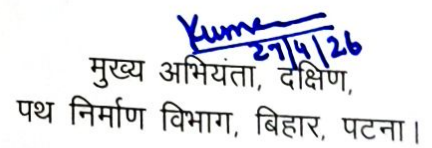 Kumar
27/4/26
मुख्य अभियंता, दक्षिण,
पथ निर्माण विभाग, बिहार, पटना।